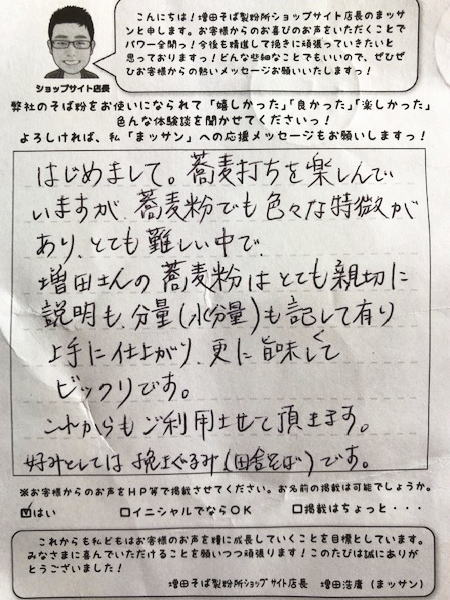 こんにちは！増田そば製粉所ショップサイト店長のまっサン
と申します。お客様からのお喜びのお声をいただくことで
パワー全開っ！今後も精進して挽きに頑張っていきたいと
思っておりますっ！どんな些細なことでもいいので、ぜひぜ
ひお客様からの熱いメッセージお願いいたしますっ！
ショップサイト店長
弊社のそば粉をお使いになられて「嬉しかった」「良かった」「楽しかった」
色んな体験談を聞かせてくださいっ！
よろしければ、私「まッサン」への応援メッセージもお願いしますっ！
はじめまして。蕎麦打ちを楽しんで
いますが、蕎麦粉でも色々な特徴が
あり、とても難しい中で、
増田さんの蕎麦粉はとても親切に
説明も、分量(水分量)も記して有り
上手に仕上がり、更に旨味しくて
ビックリです。
これからもご利用させて頂きます。
好みとしては挽きぐるみ(田舎そば)です。
※お客様からのお声をHP等で掲載させてください。お名前の掲載は可能でしょうか。
☑はい □イニシャルでならOK □掲載はちょっと・・・
これからも私どもはお客様のお声を糧に成長していくことを目標としています。
みなさまに喜んでいただけることを願いつつ頑張ります！このたびは誠にありが
とうございました！
増田そば製粉所ショップサイト店長 増田浩庸（まッサン）